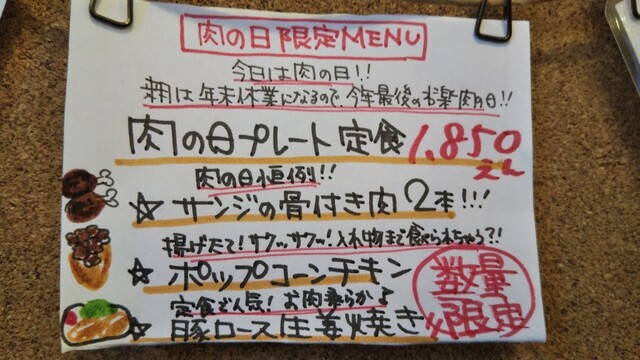 肉の日限定MENU
今日は肉の日!!
来月は年末休業になるので、今年最後のお楽しみ肉の日!!
肉の日プレート定食 1,850えん
肉の日恒例!!
☆ サンジの骨付き肉2本!!!
揚げたて!サクッサクッ!入れ物まで食べられちゃう?!
☆ ポップコーンチキン
定食で人気! お肉柔らかよ
☆ 豚ロース生姜焼き
数量限定